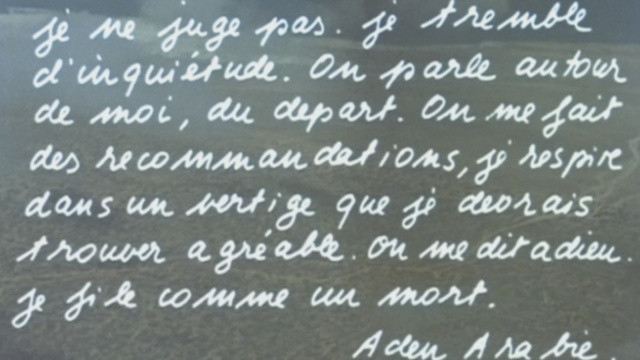 je ne juge pas. je tremble
d'inquiétude. On parle autour
de moi, du depart. On me fait
des recommandations, je respire
dans un vertige que je devrais
trouver agréable. On me dit adieu.
je file comme un mort.
Aden Arabie.